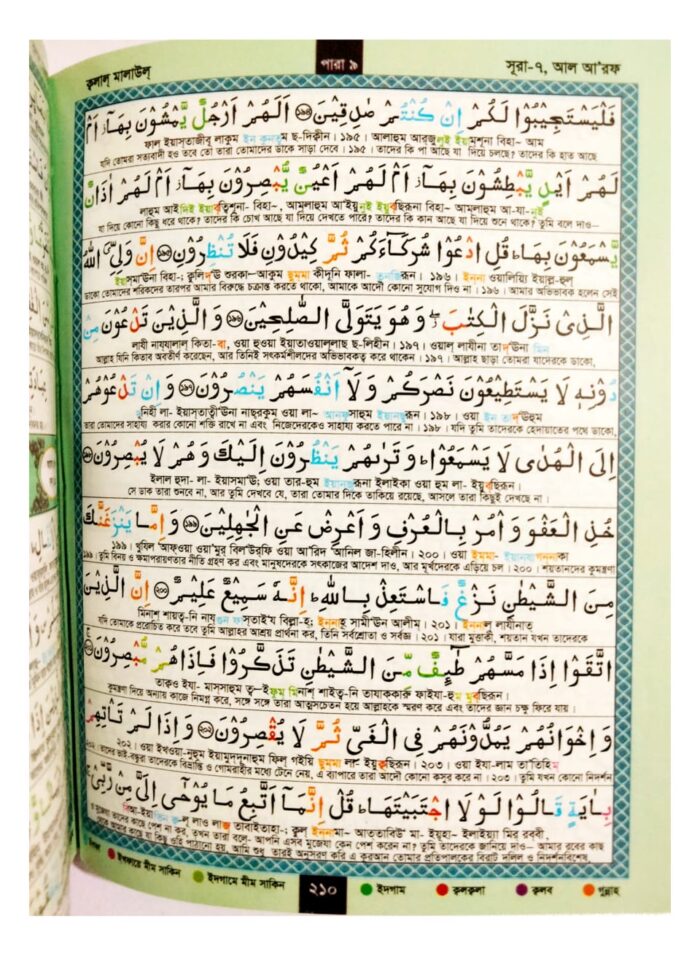 ক্বালাল্ মালাউল্
পারা ৯
সূরা-৭, আল আ'রফ
فَلْيَسْتَجِيْبُوْا لَكُمْ اِنْ كُنْتُمْ صٰدِقِيْنَ ۝۱۹۴ اَلَهُمْ اَرْجُلٌ يَّمْشُوْنَ بِهَاۤ ؗ اَمْ
ফাল ইয়াস্তাজীবূ লাকুম ইন কুনতুম ছ-দিক্বীন। ১৯৫। আলাহুম আরজুলুঁই ইয়ামশূনা বিহা~ আম
যদি তোমরা সত্যবাদী হও তবে তো তারা তোমাদের ডাকে সাড়া দেবে। ১৯৫। তাদের কি পা আছে যা দিয়ে চলছে? তাদের কি হাত আছে
لَهُمْ اَيْدٍ يَّبْطِشُوْنَ بِهَاۤ ؗ اَمْ لَهُمْ اَعْيُنٌ يُّبْصِرُوْنَ بِهَاۤ ؗ اَمْ لَهُمْ اٰذَانٌ
লাহুম আইদিঁই ইয়াবত্বিশূনা- বিহা~, আমলাহুম আ'ইয়ুনুঁই ইয়ুবছিরূনা বিহা~ আমলাহুম আ-যা-নুঁই
যা দিয়ে কোনো কিছু ধরে থাকে? তাদের কি চোখ আছে যা দিয়ে দেখতে পারে? তাদের কি কান আছে যা দিয়ে শুনে থাকে? তুমি বলে দাও—
يَّسْمَعُوْنَ بِهَا ؕ قُلِ ادْعُوْا شُرَكَآءَكُمْ ثُمَّ كِيْدُوْنِ فَلَا تُنْظِرُوْنِ ۝۱۹۵ اِنَّ وَلِيِّ َۧ اللّٰهُ
ইয়াসমা'ঊনা বিহা-; ক্বুলিদ'ঊ শুরকা—আকুম ছুম্মা কীদূনি ফালা- তুনজিরূন। ১৯৬। ইন্না ওয়ালিয়্যি ইয়াল্ল-হুল্
ডাকো তোমাদের শরিকদের তারপর আমার বিরুদ্ধে চক্রান্ত করতে থাকো, আমাকে আদৌ কোনো সুযোগ দিও না। ১৯৬। আমার অভিভাবক হলেন সেই
الَّذِيْ نَزَّلَ الْكِتٰبَ ۖؗ وَهُوَ يَتَوَلَّى الصّٰلِحِيْنَ ۝۱۹۶ وَ الَّذِيْنَ تَدْعُوْنَ مِنْ
লাযী নাযযালাল্ কিতা-বা, ওয়া হুওয়া ইয়াতাওয়াল্লাছ্ ছ-লিহীন। ১৯৭। ওয়াল্ লাযীনা তাদ'ঊনা মিন
আল্লাহ যিনি কিতাব অবতীর্ণ করেছেন, আর তিনিই সৎকর্মশীলদের অভিভাবকত্ব করে থাকেন। ১৯৭। আল্লাহ ছাড়া তোমরা যাদেরকে ডাকো,
دُوْنِهٖ لَا يَسْتَطِيْعُوْنَ نَصْرَكُمْ وَ لَاۤ اَنْفُسَهُمْ يَنْصُرُوْنَ ۝۱۹۷ وَ اِنْ تَدْعُوْهُمْ
দূনিহী লা- ইয়াস্তাত্বী'ঊনা নাছরকুম্ ওয়া লা~ আনফুসাহুম ইয়ানছুরূন। ১৯৮। ওয়া ইন তাদ'ঊহুম
তারা তোমাদের সাহায্য করার কোনো শক্তি রাখে না এবং নিজেদেরকেও সাহায্য করতে পারে না। ১৯৮। যদি তুমি তাদেরকে হেদায়াতের পথে ডাকো,
اِلَى الْهُدٰى لَا يَسْمَعُوْا ؕ وَ تَرٰىهُمْ يَنْظُرُوْنَ اِلَيْكَ وَ هُمْ لَا يُبْصِرُوْنَ ۝۱۹۸
ইলাল হুদা- লা- ইয়াসমা'ঊ; ওয়া তার-হুম ইয়ানজুরূনা ইলাইকা ওয়া হুম লা- ইয়ুবছিরূন।
সে ডাক তারা শুনবে না, আর তুমি দেখবে যে, তারা তোমার দিকে তাকিয়ে রয়েছে, আসলে তারা কিছুই দেখছে না।
خُذِ الْعَفْوَ وَ اْمُرْ بِالْعُرْفِ وَ اَعْرِضْ عَنِ الْجٰهِلِيْنَ ۝۱۹۹ وَ اِمَّا يَنْزَغَنَّكَ
১৯৯। খুযিল 'আফ্ওয়া ওয়া'মুর্ বিল'উর্ফি ওয়া আ'রিদ্ব 'আনিল জা-হিলীন। ২০০। ওয়া ইম্মা- ইয়ানযাগান্নাকা
১৯৯। তুমি বিনয় ও ক্ষমাপরায়ণতার নীতি গ্রহণ কর এবং মানুষদেরকে সৎকাজের আদেশ দাও, আর মূর্খদেরকে এড়িয়ে চল। ২০০। শয়তানদের কুমন্ত্রণা
مِنَ الشَّيْطٰنِ نَزْغٌ فَاسْتَعِذْ بِاللّٰهِ ؕ اِنَّهٗ سَمِيْعٌ عَلِيْمٌ ۝۲۰۰ اِنَّ الَّذِيْنَ
মিনাশ্ শায়ত্ব-নি নায্গুন ফাস্তা'ইয বিল্লা-হ; ইন্নাহূ সামী'ঊন আলীম। ২০১। ইন্নাল্ লাযীনাত্
যদি তোমাকে প্ররোচিত করে তবে তুমি আল্লাহর আশ্রয় প্রার্থনা কর, তিনি সর্বশ্রোতা ও সর্বজ্ঞ। ২০১। যারা মুত্তাকী, শয়তান যখন তাদেরকে
اتَّقَوْا اِذَا مَسَّهُمْ طٰٓئِفٌ مِّنَ الشَّيْطٰنِ تَذَكَّرُوْا فَاِذَا هُمْ مُّبْصِرُوْنَ ۝۲۰۱
তাক্বও ইযা- মাসসাহুম ত্ব—ইফুম্ মিনাশ্ শাইত্ব-নি তাযাক্কারূ ফাইযা-হুম মুবছিরূন।
কুমন্ত্রণা দিয়ে অন্যায় কাজে নিমগ্ন করে, সঙ্গে সঙ্গে তারা আত্মসচেতন হয়ে আল্লাহকে স্মরণ করে এবং তাদের জ্ঞান চক্ষু ফিরে যায়।
وَ اِخْوَانُهُمْ يَمُدُّوْنَهُمْ فِي الْغَيِّ ثُمَّ لَا يُقْصِرُوْنَ ۝۲۰۲ وَ اِذَا لَمْ تَاْتِهِمْ
২০২। ওয়া ইখওয়া-নুহুম ইয়ামুদ্দূনাহুম ফিল্ গইয়ি ছুম্মা লা- ইয়ুক্বছিরূন। ২০৩। ওয়া ইযা-লাম তা'তিহিম
২০২। তাদের ভাই-বন্ধুরা তাদেরকে বিভ্রান্তি ও গোমরাহীর মধ্যে টেনে নেয়, এ ব্যাপারে তারা আদৌ কোনো কসুর করে না। ২০৩। তুমি যখন কোনো নিদর্শন
بِاٰيَةٍ قَالُوْا لَوْ لَا اجْتَبَيْتَهَا ؕ قُلْ اِنَّمَاۤ اَتَّبِعُ مَا يُوْحٰۤى اِلَيَّ مِنْ رَّبِّيْ ۚ
ক্ব-লূ লাও লাজ্ তাবাইতাহা-; ক্বুল্ ইন্নামা~ আত্তাবি'উ মা- ইয়ূহা~ ইলাইয়্যা মির রব্বী,
তাদের কাছে পেশ না কর, তখন তারা বলে- আপনি এসব মুজেযা কেন পেশ করেন না? তুমি তাদেরকে জানিয়ে দাও— আমার রবের কাছ
থেকে আমার কাছে যা কিছু ওহি পাঠানো হয়, আমি শুধু তারই অনুসরণ করি এ কুরআন তোমার প্রতিপালকের বিরাট দলিল ও নিদর্শনবিশেষ,
ইখফায়ে মীম সাকিন
ইদগামে মীম সাকিন
২১০
ইদগাম
ক্বলক্বলা
ক্বলব
গুন্নাহ